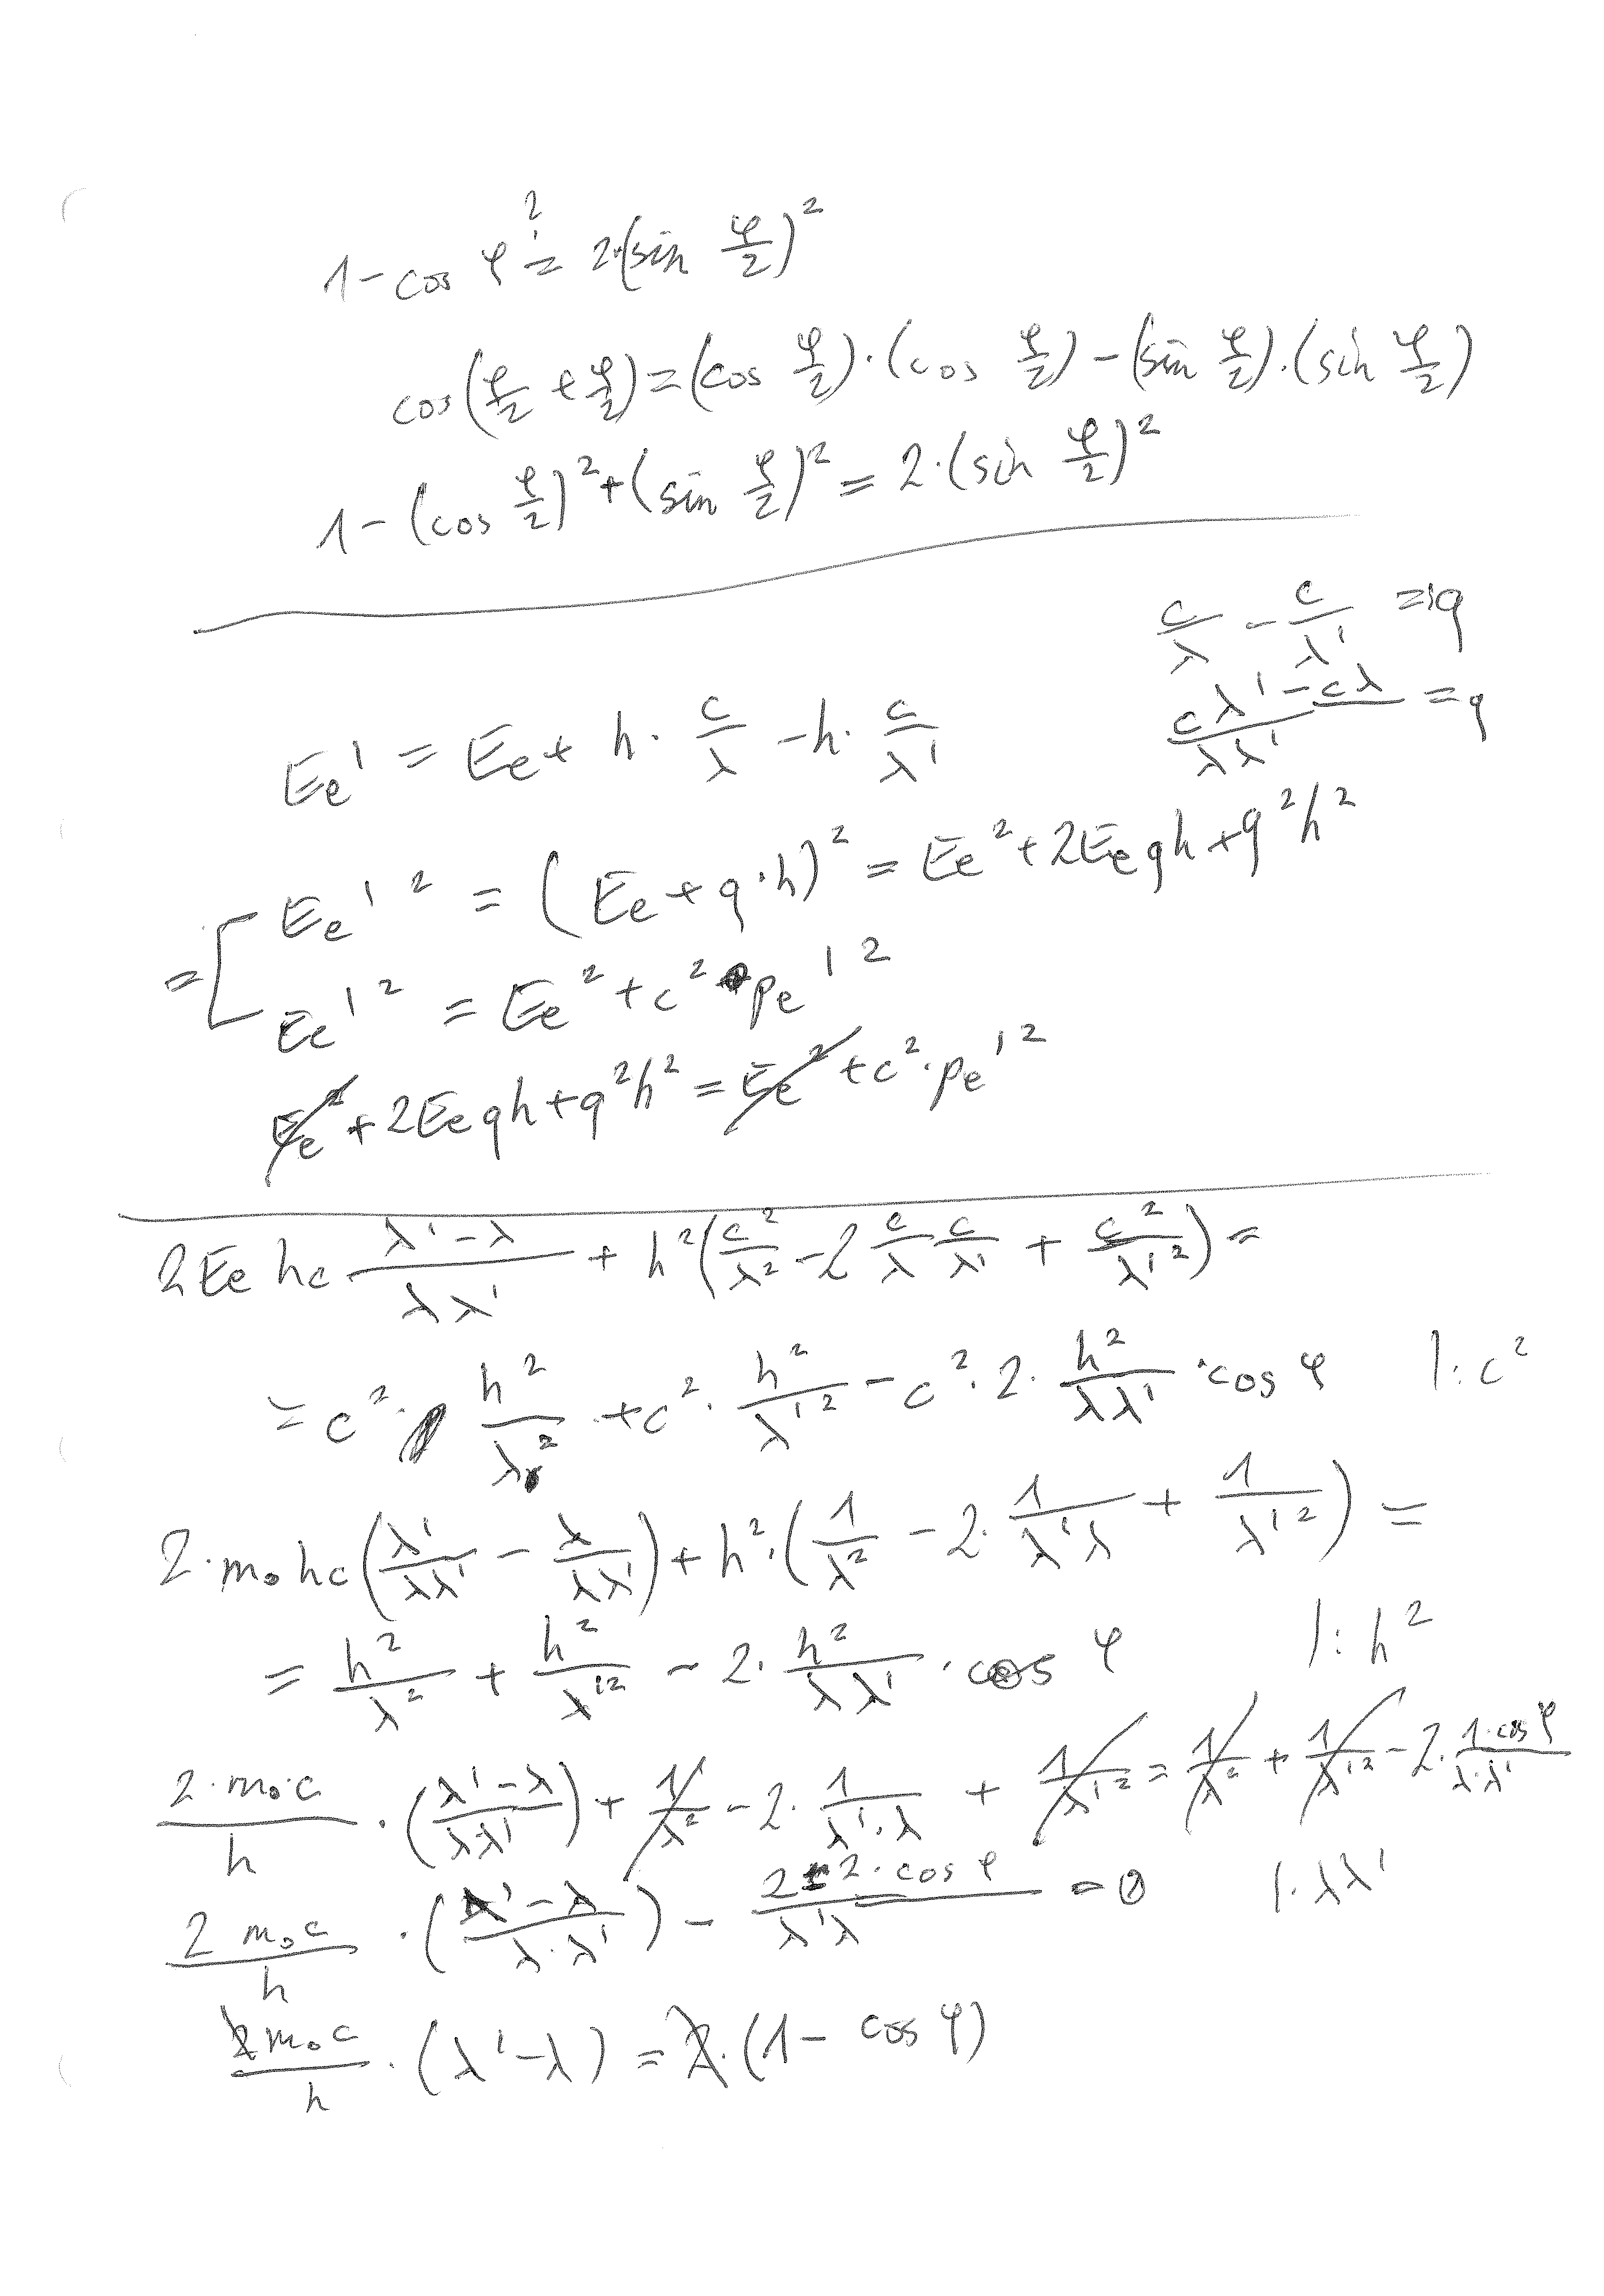 1 - cos φ ?= 2·(sin φ/2)²
cos(φ/2 + φ/2) = (cos φ/2)·(cos φ/2) - (sin φ/2)·(sin φ/2)
1 - (cos φ/2)² + (sin φ/2)² = 2·(sin φ/2)²
c/λ - c/λ' =: q
(cλ' - cλ)/(λλ') = q
Ee' = Ee + h · c/λ - h · c/λ'
Ee'² = (Ee + q·h)² = Ee² + 2Ee qh + q²h²
= [ Ee'² = Ee² + c² · pe'²
Ee² + 2Ee qh + q²h² = Ee² + c² · pe'²
2Ee hc (λ' - λ)/(λλ') + h²(c²/λ² - 2 c/λ c/λ' + c²/λ'²) =
= c² · h²/λ² + c² · h²/λ'² - c² · 2 · h²/(λλ') · cos φ |: c²
2·m₀hc(λ'/(λλ') - λ/(λλ')) + h²·(1/λ² - 2· 1/(λ'λ) + 1/λ'²) =
= h²/λ² + h²/λ'² - 2· h²/(λλ') · cos φ |: h²
(2·m₀·c)/h · ((λ' - λ)/(λ·λ')) + 1/λ² - 2· 1/(λ'·λ) + 1/λ'² = 1/λ² + 1/λ'² - 2· (1·cos φ)/(λ·λ')
(2 m₀c)/h · ((λ' - λ)/(λ·λ')) - (2 - 2·cos φ)/(λ'λ) = 0 |· λλ'
(2m₀c)/h · (λ' - λ) = 2·(1 - cos φ)